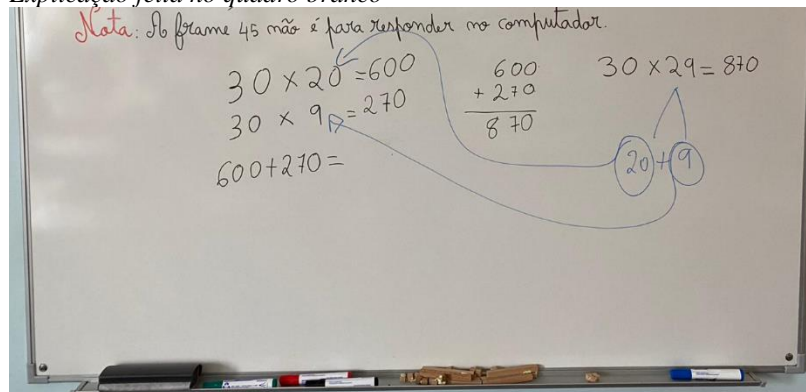 Explicação feita no quadro branco
Nota: A frame 45 não é para responder no computador.
30 x 20 = 600
30 x 9 = 270
600+270=
600
+ 270
870
30 x 29 = 870
20 + 9